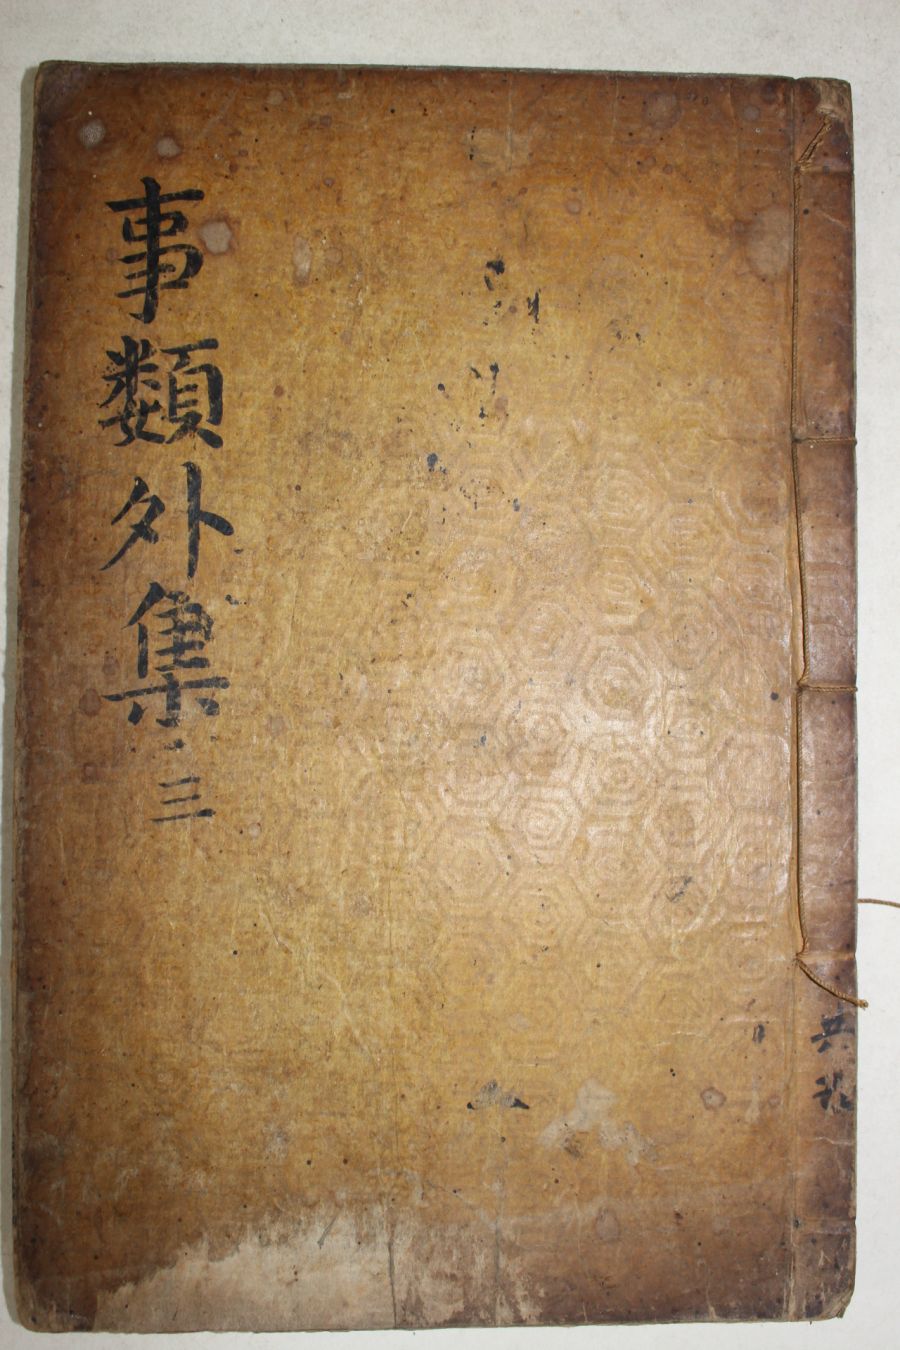 事類外集 三
共